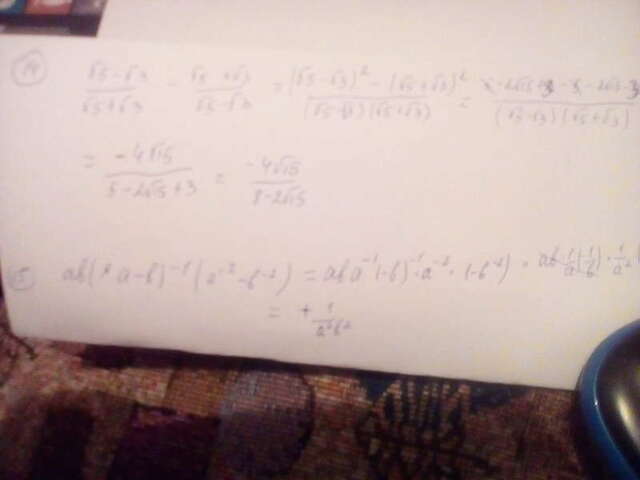 14 (√5-√3)/(√5+√3) - (√5+√3)/(√5-√3) = ((√5-√3)² - (√5+√3)²)/((√5-√3)(√5+√3)) = (5-2√15+3-5-2√15-3)/((√5-√3)(√5+√3))
= (-4√15)/(5-2√15+3) = (-4√15)/(8-2√15)
15 ab(a-b)⁻¹(a⁻²-b⁻²) = ab a⁻¹(-b)⁻¹·a⁻²·(-b⁻²) = ab·1/a(-1/b)·1/a²
= +1/(a²b²)